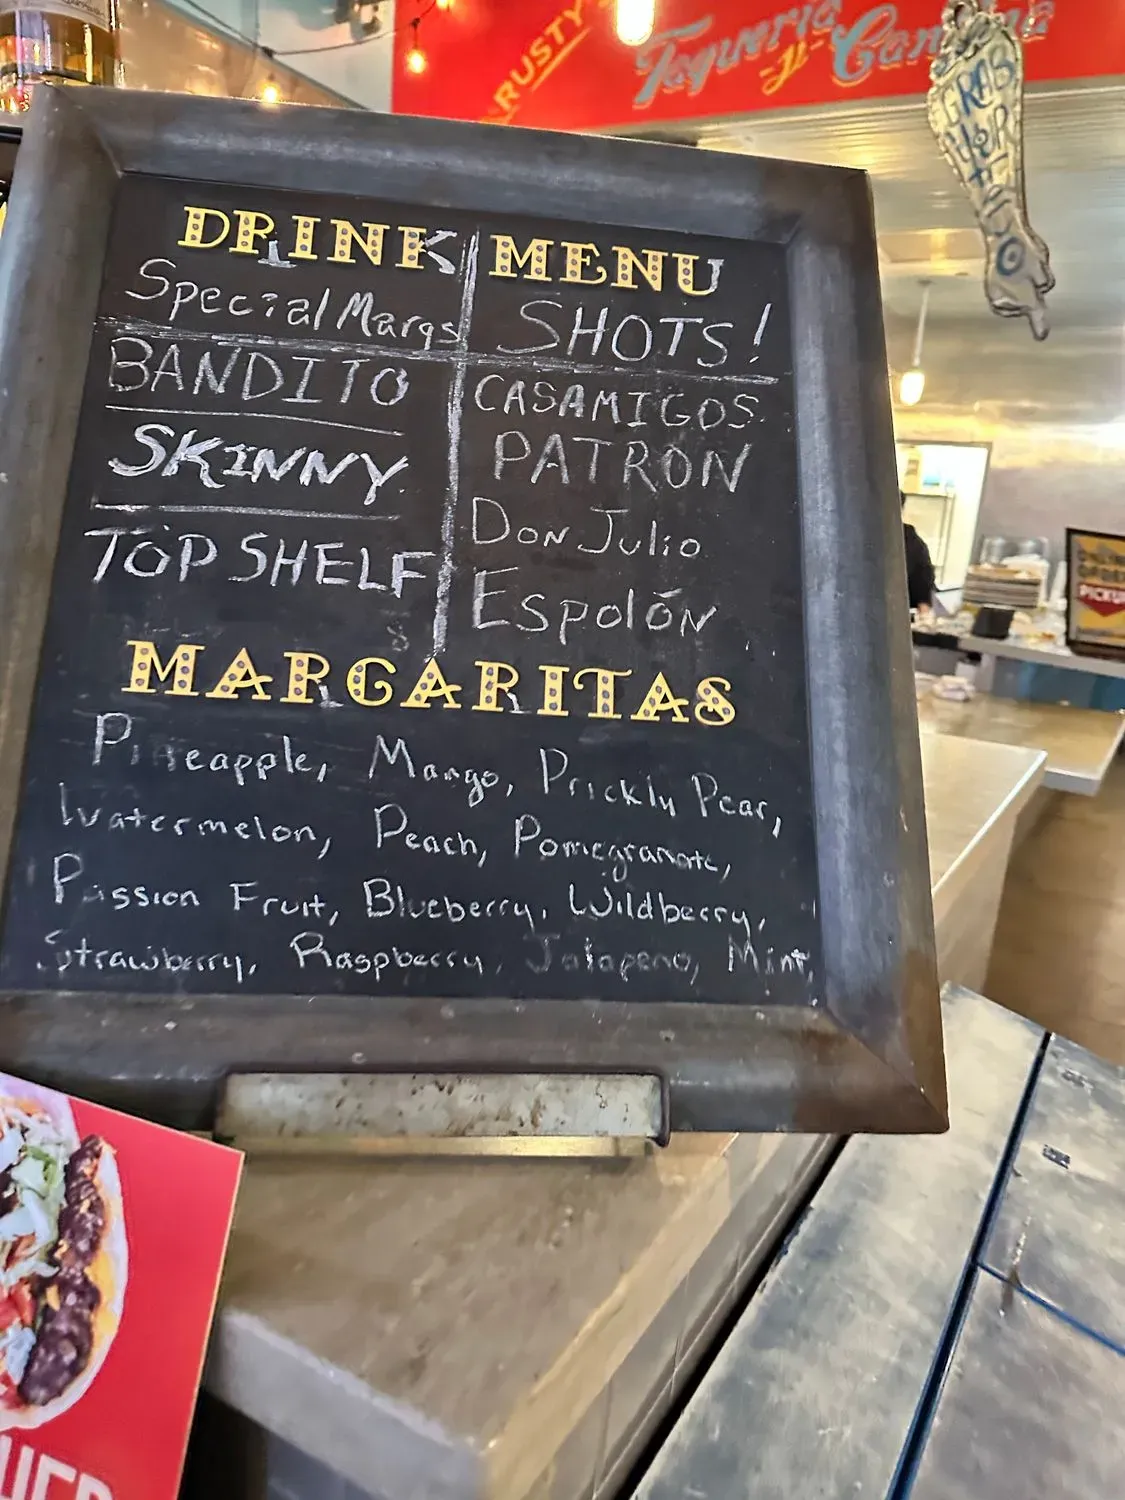 RUSTY
Taqueria
Y
Cantina
GRAB
HER
DRINK MENU
Special Margs
BANDITO
SKINNY
TOP SHELF
SHOTS!
CASAMIGOS
PATRON
Don Julio
Espolón
MARGARITAS
Pineapple, Mango, Prickly Pear,
Watermelon, Peach, Pomegranate,
Passion Fruit, Blueberry, Wildberry,
Strawberry, Raspberry, Jalapeno, Mint,